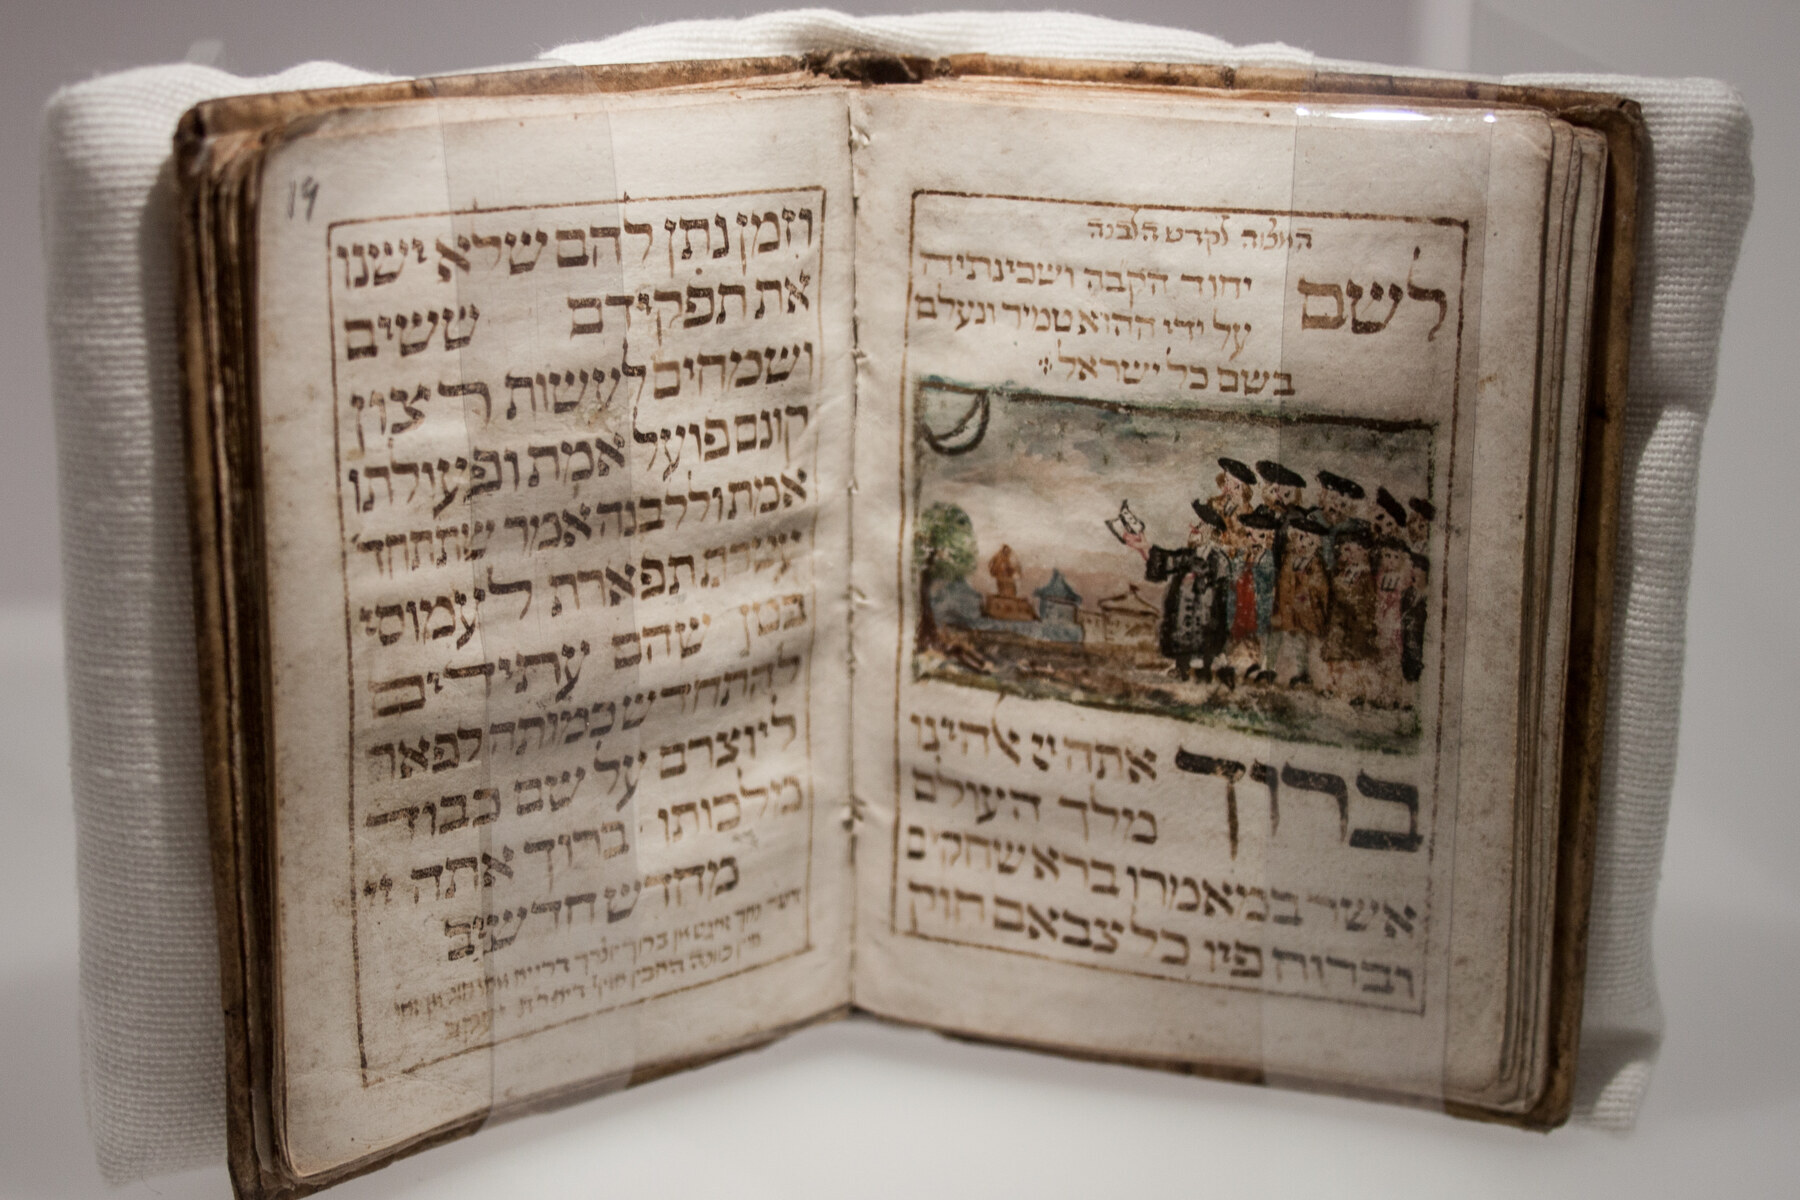 לקדש הלבנה
לשם יחוד הקבה ושכינתיה
על ידי ההוא טמיר ונעלם
בשם כל ישראל
ברוך אתה יי אלהינו
מלך העולם
אשר במאמרו ברא שחקים
וברוח פיו כל צבאם חוק
19
וזמן נתן להם שלא ישנו
את תפקידם ששים
ושמחים לעשות רצון
קונם פועל אמת ופעולתו
אמת וללבנה אמר שתתחדש
עטרת תפארת לעמוסי
בטן שהם עתידים
להתחדש כמותה לפאר
ליוצרם על שם כבוד
מלכותו ברוך אתה יי
מחדש חדשים